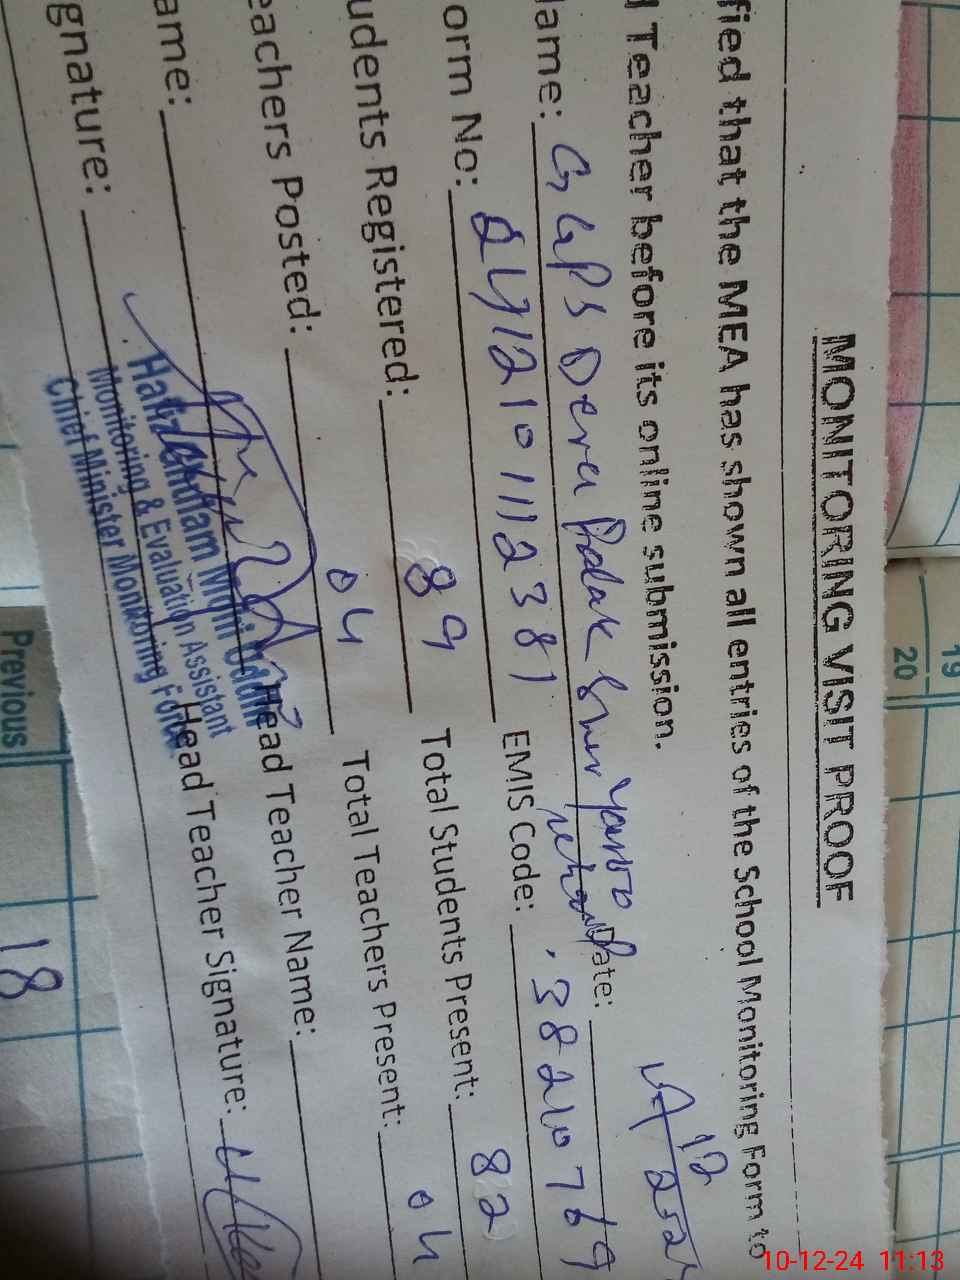 MONITORING VISIT PROOF
fied that the MEA has shown all entries of the School Monitoring Form to
Teacher before its online submission.
Date: 12
ame: GGPS Dera
orm No: 2412101112381 EMIS Code: 38210769
udents Registered: 89 Total Students Present: 82
eachers Posted: 04 Total Teachers Present: 04
ame: Head Teacher Name:
gnature: Head Teacher Signature:
Monitoring & Evaluation Assistant
Chief Minister Monitoring Force
19
20
Previous
18
10-12-24 11:13